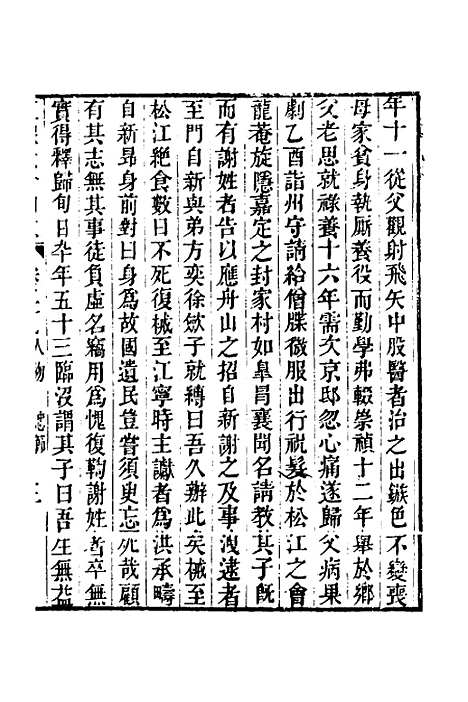 年十一從父觀射飛矢中股醫者治之出鏃色不變喪
母家貧身執厮養役而勤學弗輟崇禎十二年舉於鄉
父老思就祿養十六年需次京邸忽心痛遂歸父病果
劇乙酉詣州守請給僧牒微服出行視髮於松江之會
龍菴旋隱嘉定之封家村如臯昌襄聞名請教其子旣
而有謝姓者告以應舟山之招自新謝之及事洩逮者
至門自新與弟方奕徐斂子就縛曰吾久辦此矣械至
松江絶食數日不死復械至江寧時主讞者爲洪承疇
自新昻身前對曰身爲故國遺民豈嘗須臾忘死哉顧
有其志無其事徒負虛名竊用爲愧復鞫謝姓者卒無
實得釋歸旬日卒年五十三臨沒謂其子曰吾生無益
人物
忠節